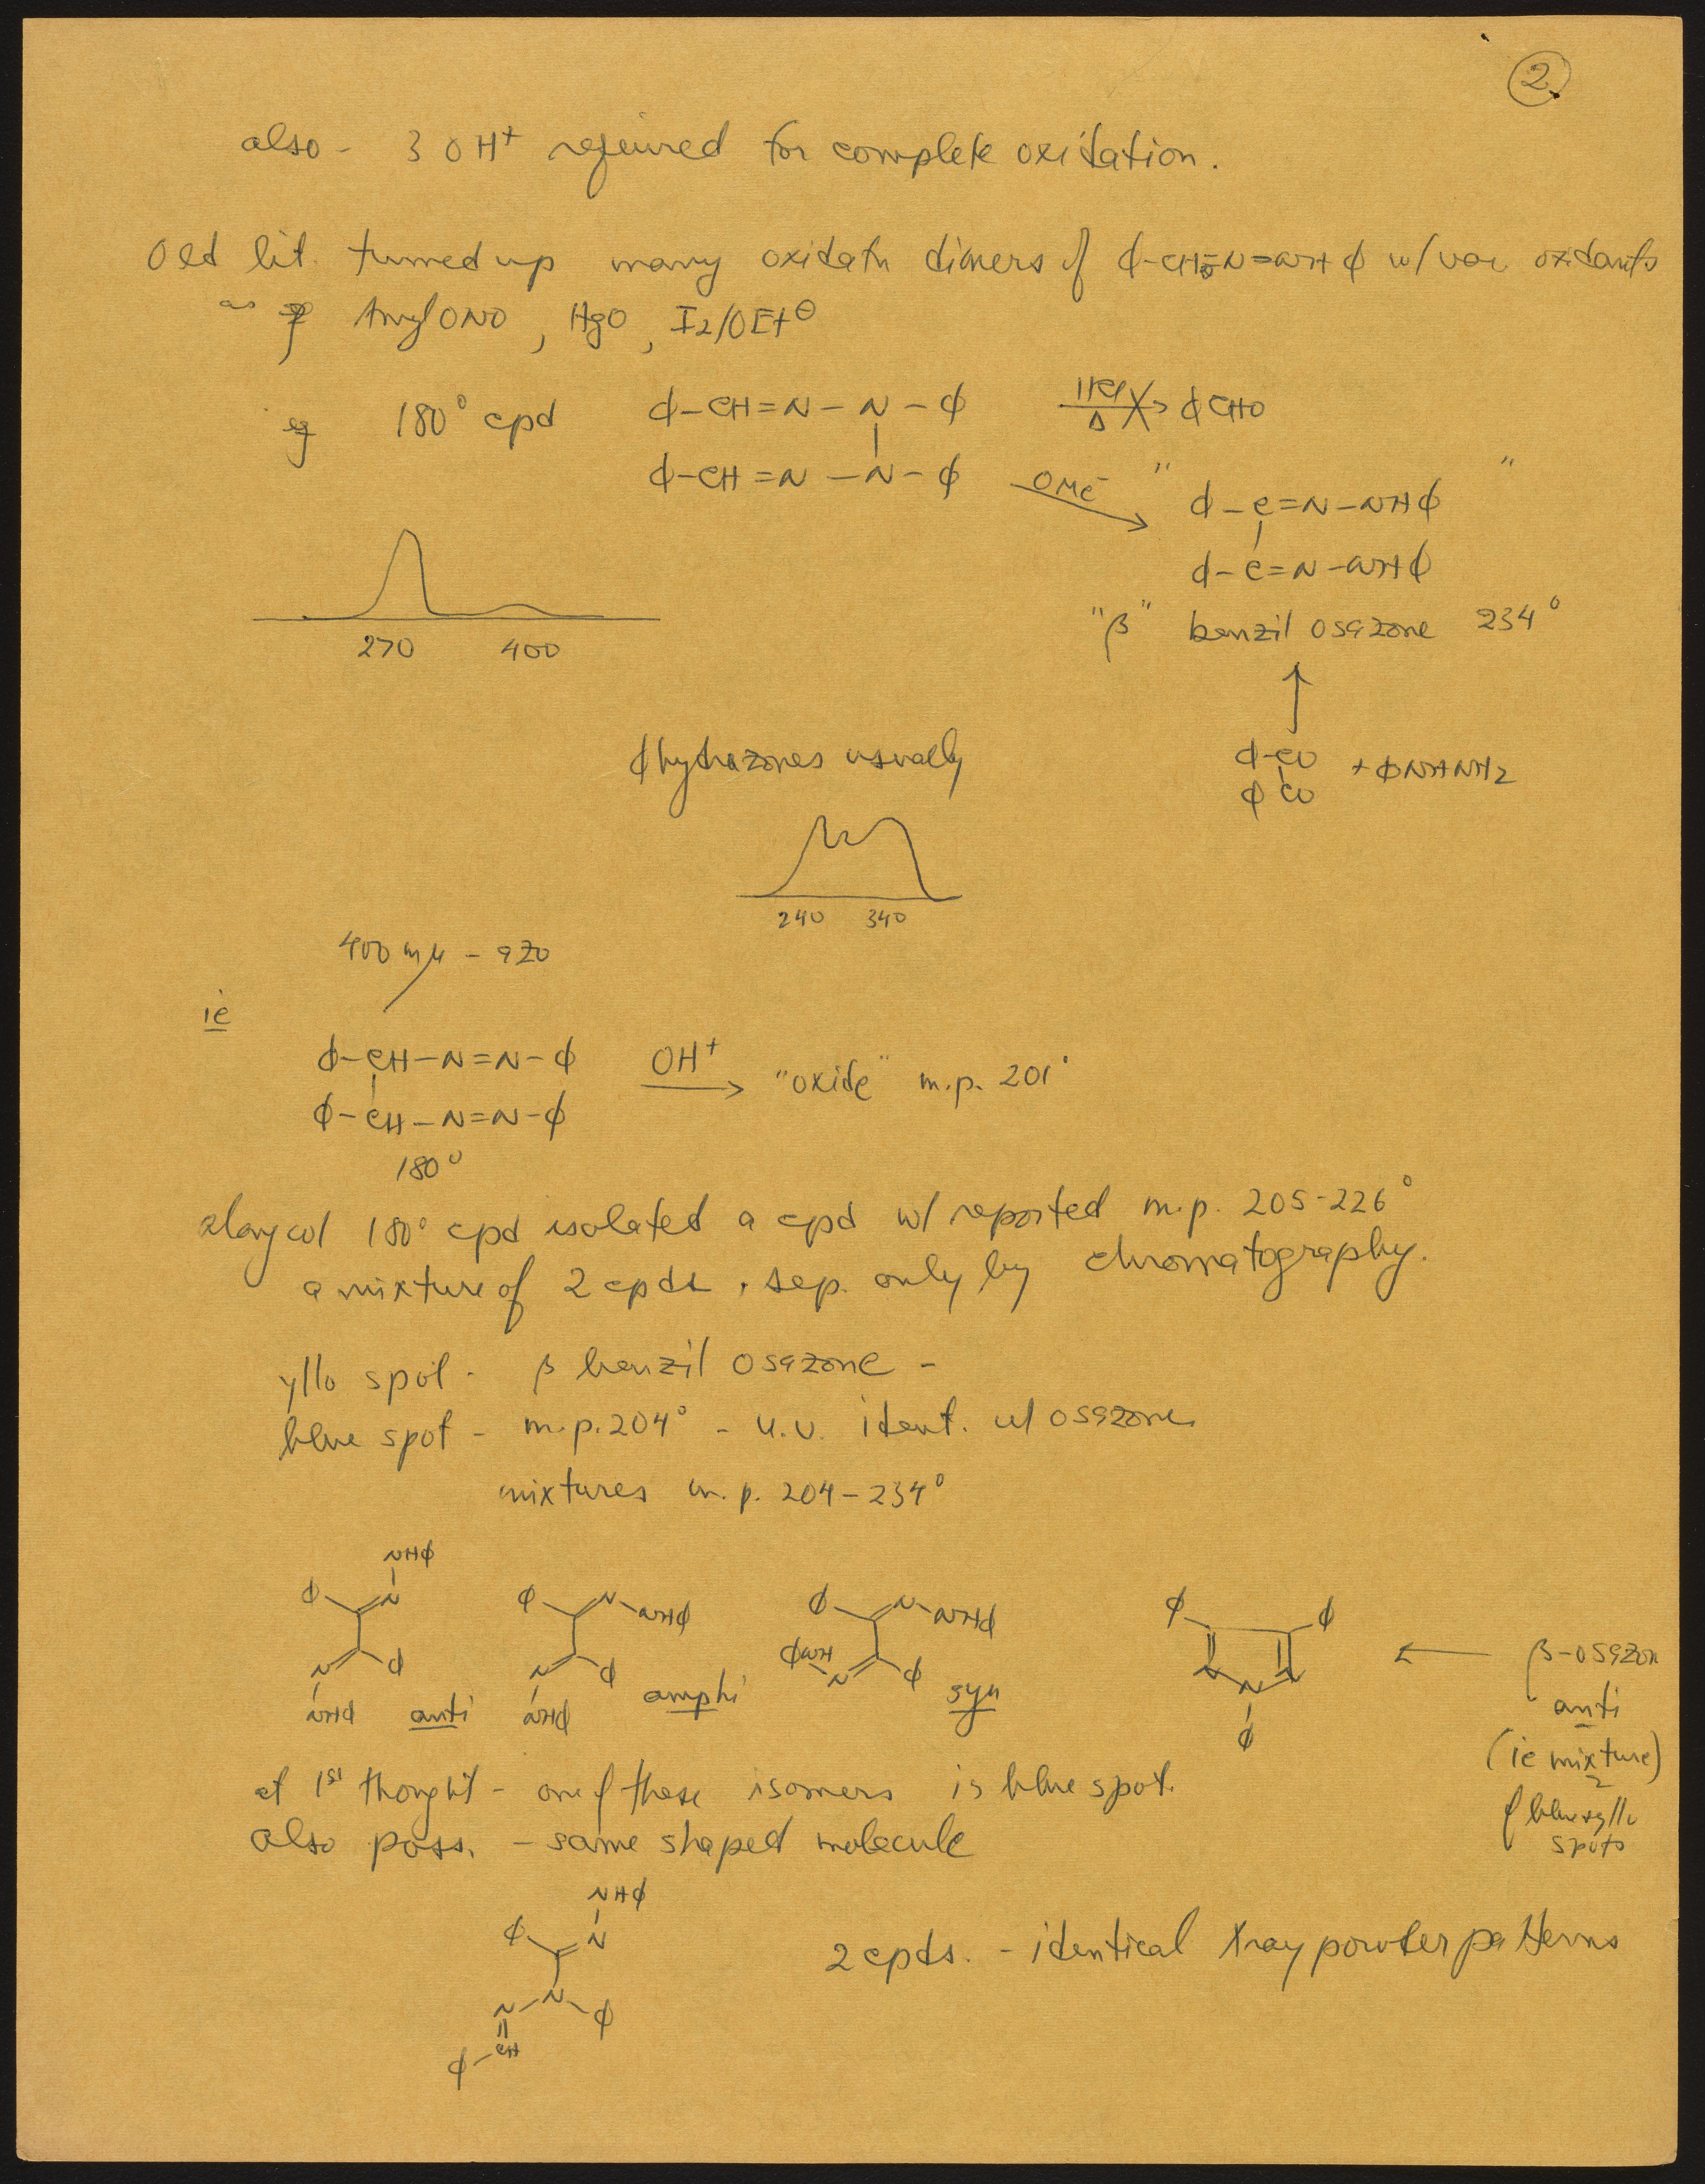 2.
also - 3 OH⁺ required for complete oxidation.
Old lit. turned up many oxidatn dimers of ϕ-CH=N-NHϕ w/ var oxidants
as AmylONO, HgO, I2/OEt⊖
eg 180° cpd ϕ-CH=N-N-ϕ HCl Δ ϕCHO
ϕ-CH=N-N-ϕ OMe⁻ " "
ϕ-C=N-NHϕ
ϕ-C=N-NHϕ
270 400
"β" benzil osazone 234°
ϕhydrazones usually
ϕ-CO + ϕNHNH2
ϕCO
240 340
400 mμ - azo
ie
ϕ-CH-N=N-ϕ OH⁺ "oxide" m.p. 201°
ϕ-CH-N=N-ϕ
180°
along w/ 180° cpd isolated a cpd w/ reported m.p. 205-226°
a mixture of 2 cpds, sep. only by chromatography.
yllo spot - β benzil osazone -
blue spot - m.p. 204° - u.v. ident. w/ osazone
mixtures m.p. 204-234°
NHϕ
ϕ N ϕ N-NHϕ ϕ N-NHϕ ϕ ϕ
N ϕ N ϕ ϕNH N ϕ N N N
NHϕ anti NHϕ amphi syn ϕ
β-osazon
anti
(ie mixture)
of blue & yllo
spots
at 1st thought - one of these isomers is blue spot.
also poss. - same shaped molecule
NHϕ
ϕ N
N-N ϕ
ϕ-CH
2 cpds. - identical Xray powder patterns